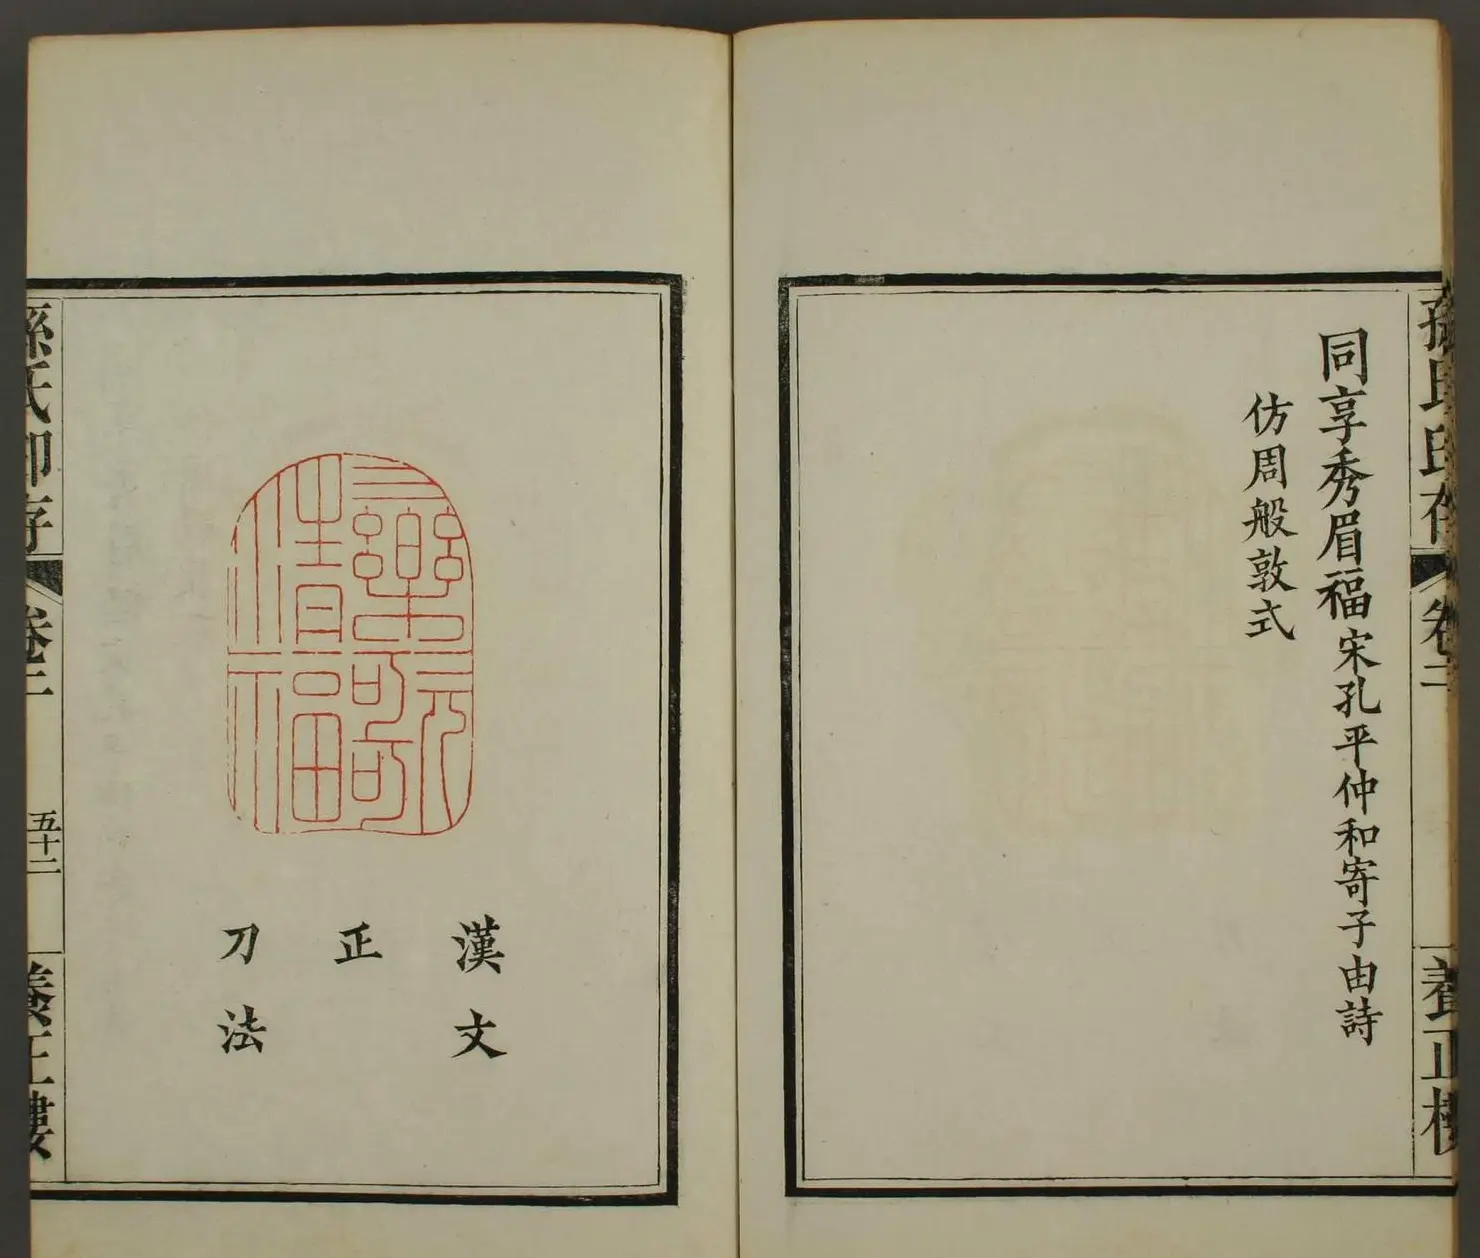 孫氏印存
卷二
養正樓
同享秀眉福 宋孔平仲和寄子由詩
仿周般敦式
漢文
正
刀法
孫氏印存
卷二
五十二
養正樓